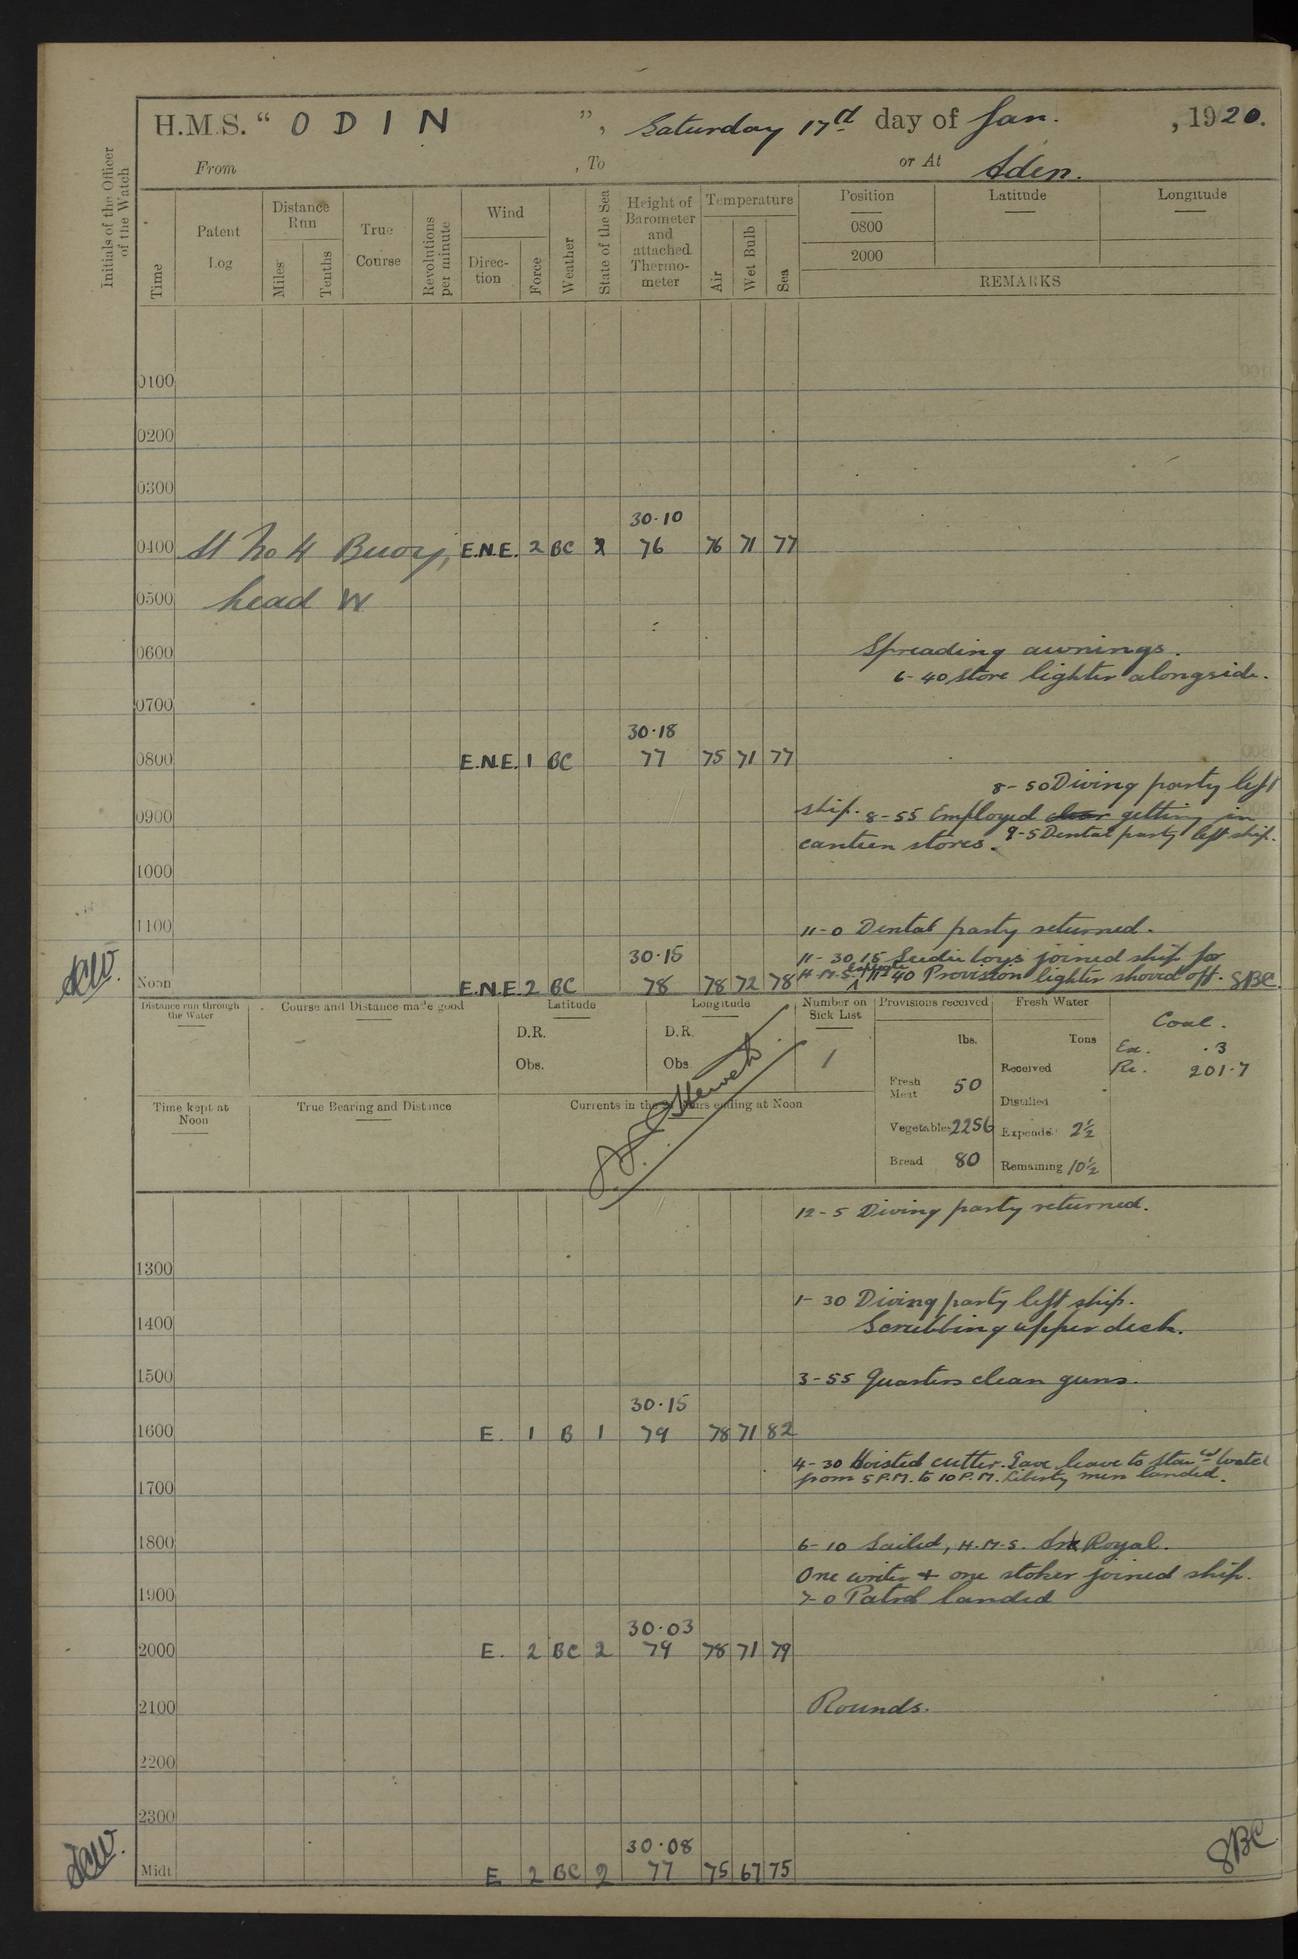 H.M.S. “ ODIN ”, Saturday 17th day of Jan. , 1920.
From , To or At Aden.
Initials of the Officer of the Watch
Time
Patent Log
Distance Run
Miles
Tenths
True Course
Revolutions per minute
Wind
Direction
Force
Weather
State of the Sea
Height of Barometer and attached Thermometer
Temperature
Air
Wet Bulb
Sea
Position Latitude Longitude
0800
2000
REMARKS
0100
0200
0300
30.10
0400 At No 4 Buoy, E.N.E. 2 BC 76 76 71 77
0500 head W
0600 Spreading awnings.
6-40 Store lighter alongside.
0700
30.18
0800 E.N.E. 1 BC 77 75 71 77
8-50 Diving party left
ship. 8-55 Employed clear getting in
0900
canteen stores. 9-5 Dental party left ship.
1000
1100 11-0 Dental party returned.
30.15 11-30 15 Seedie boys joined ship for
Noon E.N.E. 2 BC 78 78 72 78 H.M.S. 11-40 Provision lighter shoved off. SBC
Distance run through the Water
Course and Distance made good
Latitude
D.R.
Obs.
Longitude
D.R.
Obs
Number on Sick List
1
Provisions received
lbs.
Fresh Meat 50
Vegetables 2256
Bread 80
Fresh Water
Tons
Received
Distilled
Expended 2½
Remaining 10½
Coal.
Ex. .3
Re. 201.7
Time kept at Noon
True Bearing and Distance
Currents in the hours ending at Noon
12-5 Diving party returned.
1300
1-30 Diving party left ship.
1400 Scrubbing upper deck.
1500 3-55 Quarters clean guns.
30.15
1600 E. 1 B 1 79 78 71 82
4-30 Hoisted cutter. Gave leave to Starbd Watch
from 5 P.M. to 10 P.M. Liberty men landed.
1700
1800 6-10 Sailed, H.M.S. Ark Royal.
One writer + one stoker joined ship.
1900 7-0 Patrol landed
30.03
2000 E. 2 BC 2 79 78 71 79
2100 Rounds.
2200
2300
30.08
Midt E 2 BC 2 77 75 67 75 SBC